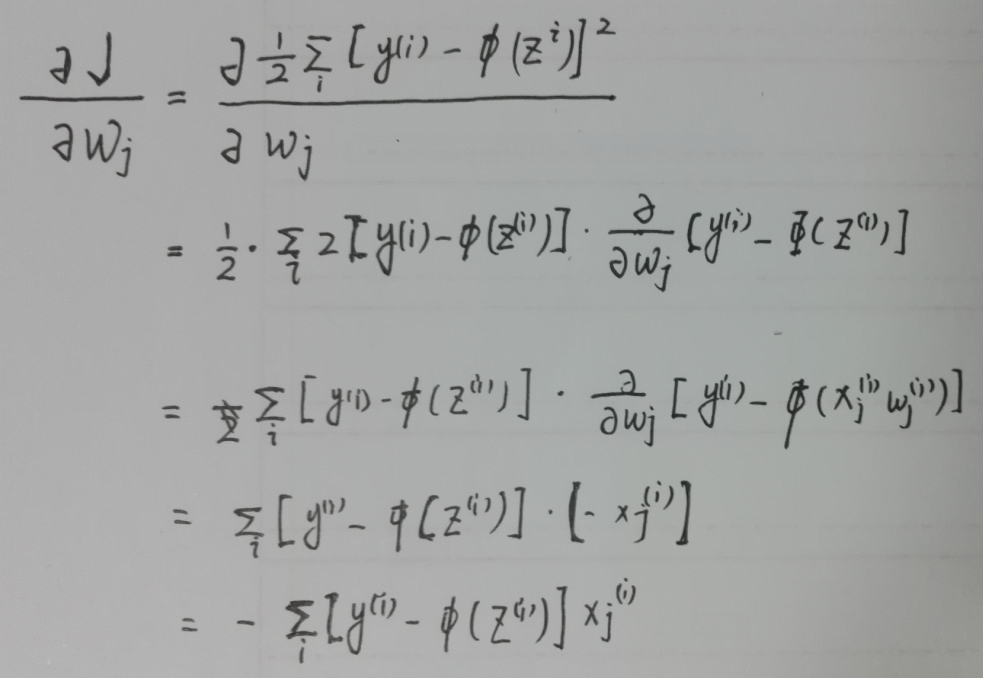 ∂J/∂Wj = ∂ 1/2 Σi [y(i) − ϕ(Z^i)]^2 / ∂Wj
= 1/2 · Σi 2[y(i) − ϕ(Z^(i))] · ∂/∂Wj [y^(i) − Φ(Z^(i))]
= Σi [y(i) − ϕ(Z^(i))] · ∂/∂Wj [y^(i) − ϕ(Xj^(i) Wj^(i))]
= Σi [y^(i) − ϕ[Z^(i))] · [− xj^(i)]
= − Σi [y^(i) − ϕ(Z^(i))] xj^(i)